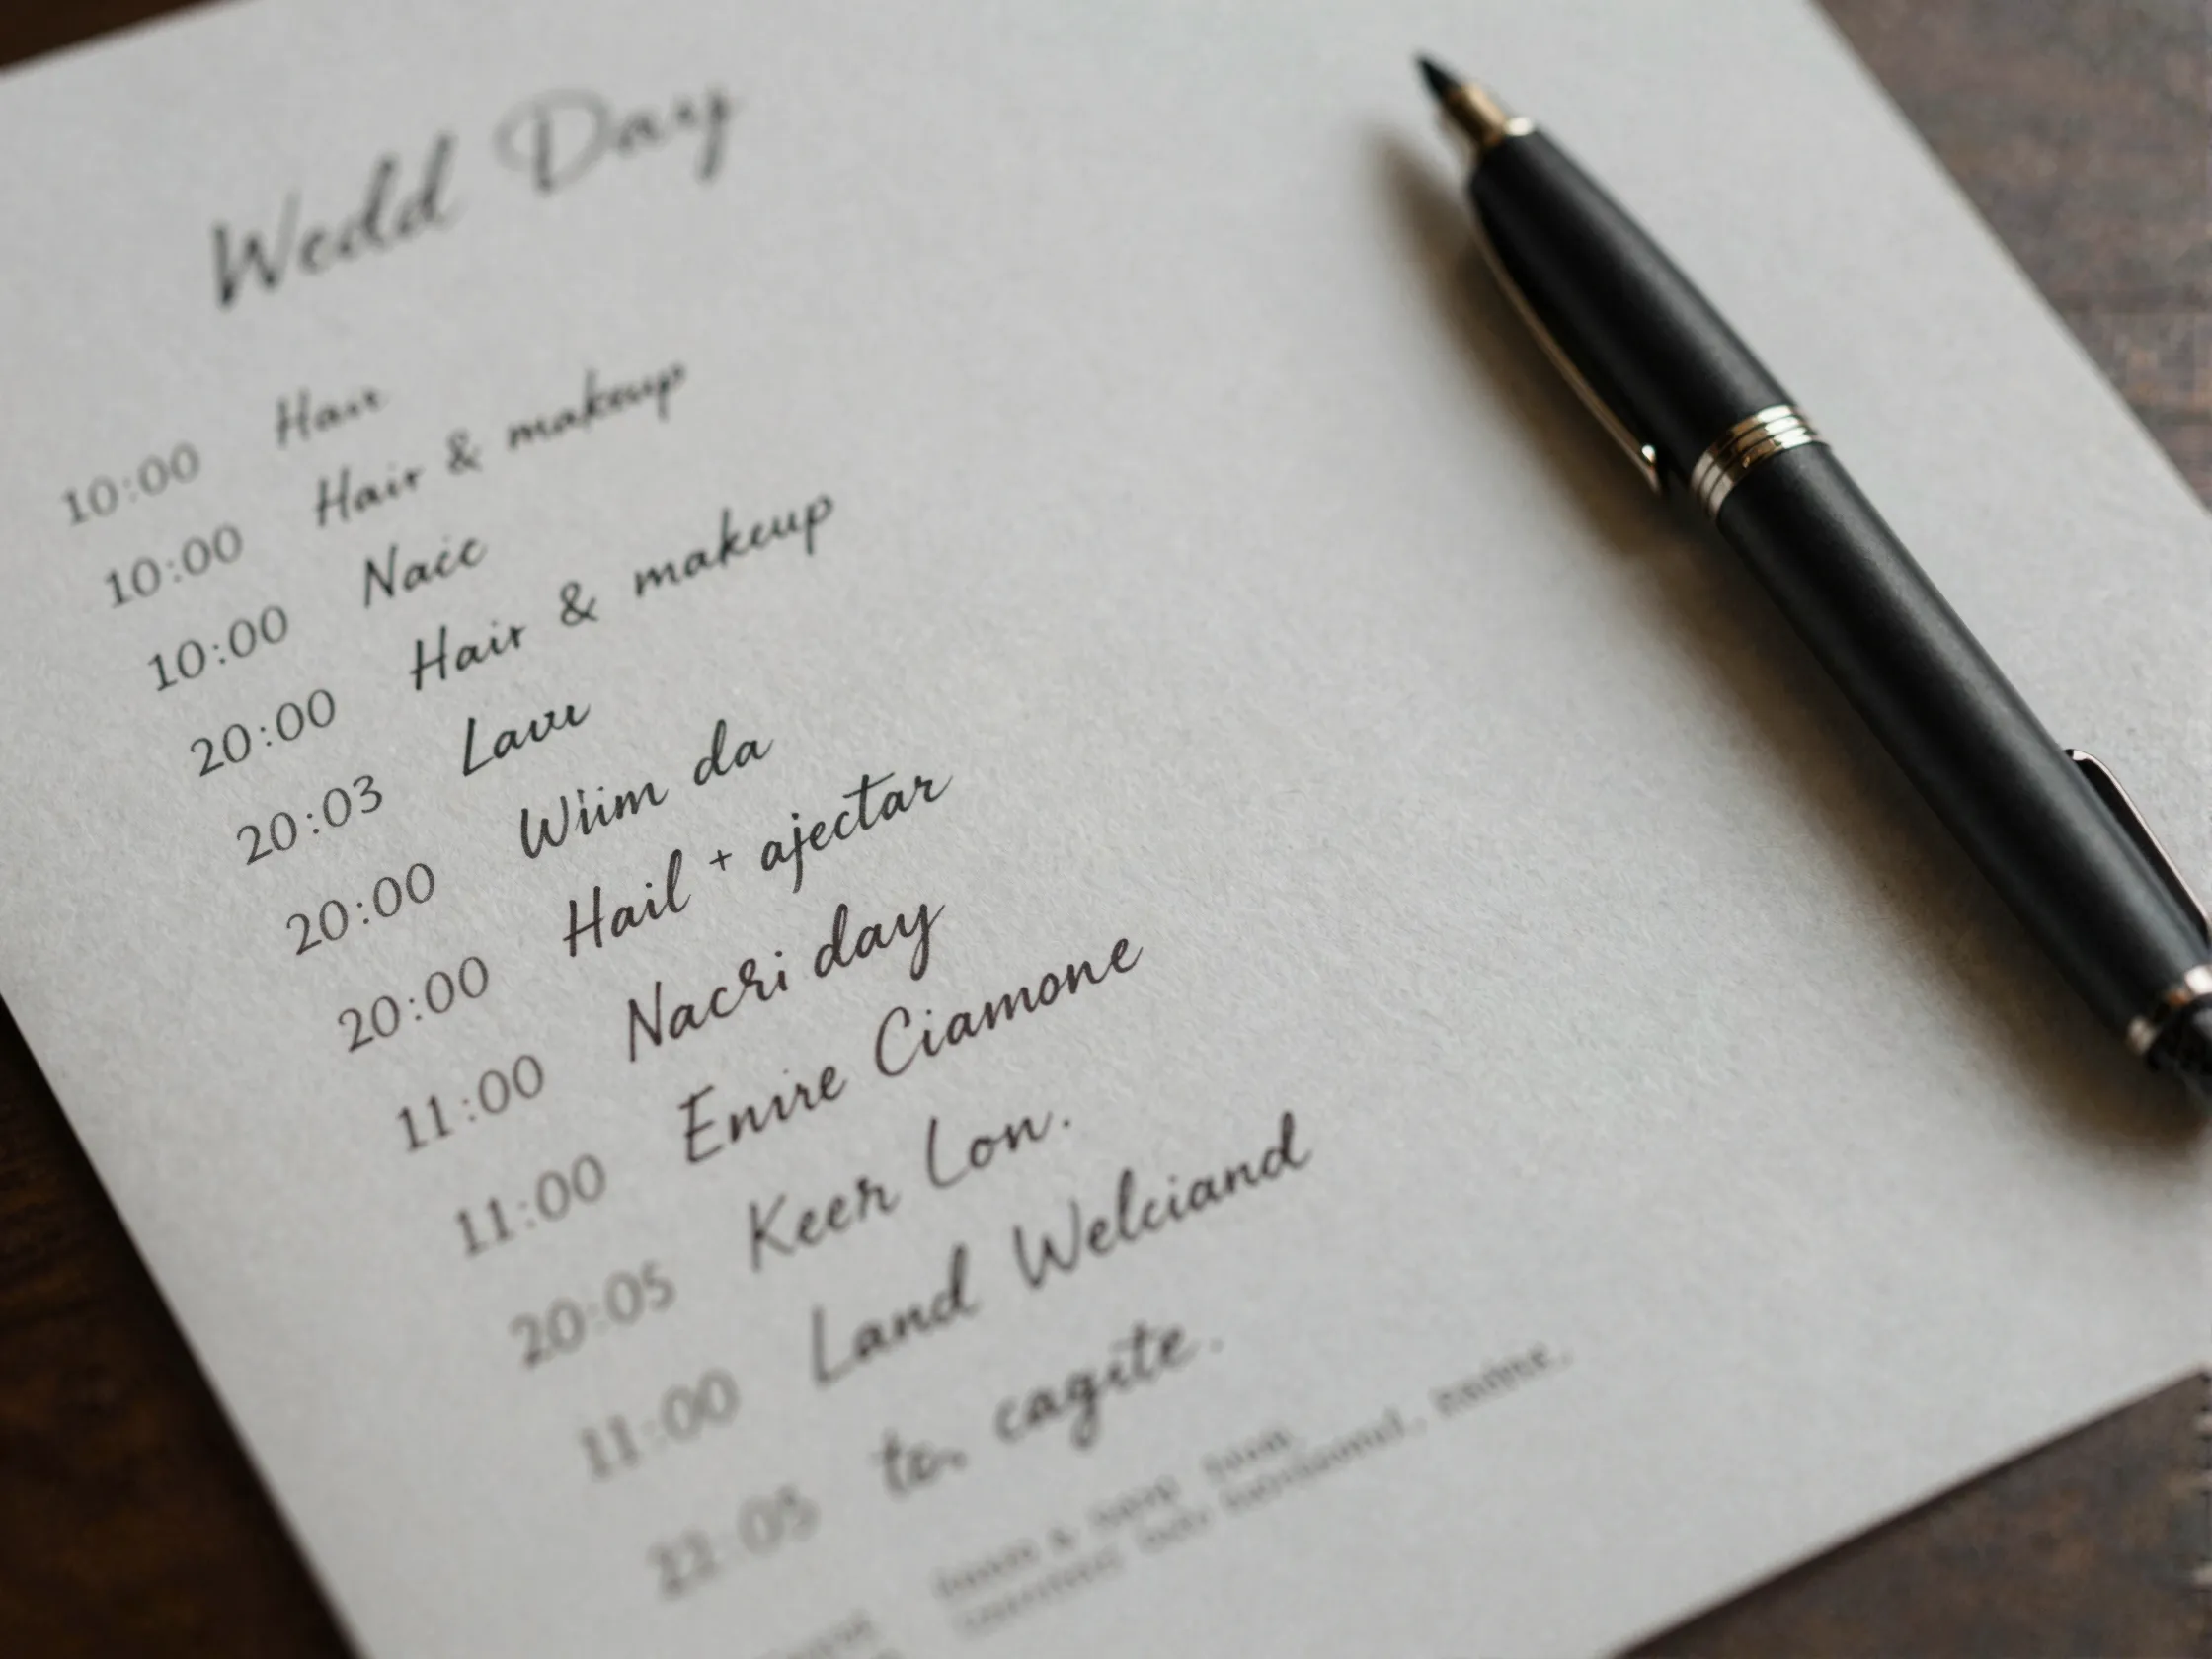 Wedd Day
10:00 Hair
10:00 Hair & makeup
10:00 Naic
20:00 Hair & makeup
20:03 Lavu
20:00 Wiim da
20:00 Hail + ajectar
11:00 Nacri day
11:00 Enire Ciamone
20:05 Keer Lon.
11:00 Land Welciand
22:05 cagite.